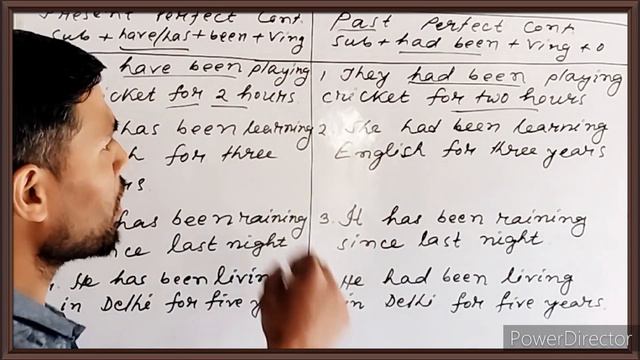 Present Perfect Cont.
Sub + have/has + been + Ving
have been playing
cricket for 2 hours.
has been learning
for three
has been raining
since last night
He has been livin
in Delhi for five y
Past Perfect Cont
Sub + had been + Ving + o
1, They had been playing
cricket for two hours
2. She had been learning
English for three years
3. It has been raining
since last night.
He had been living
in Delhi for five years.
PowerDirector